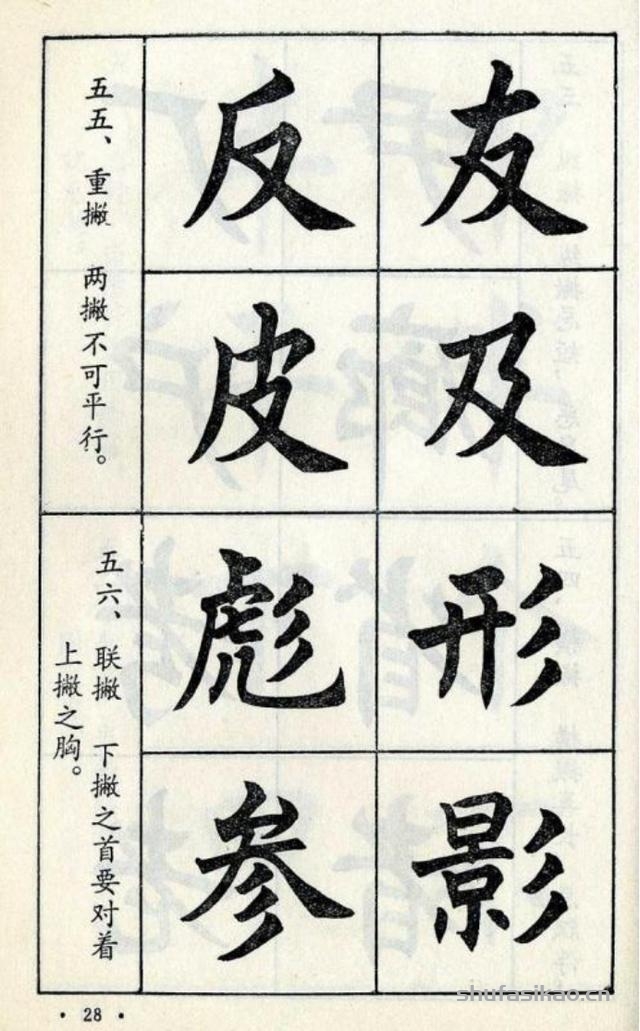 友及
反皮
五五、重撇 两撇不可平行。
形影
彪参
五六、联撇 下撇之首要对着
上撇之胸。
· 28 ·
shufasikao.cn